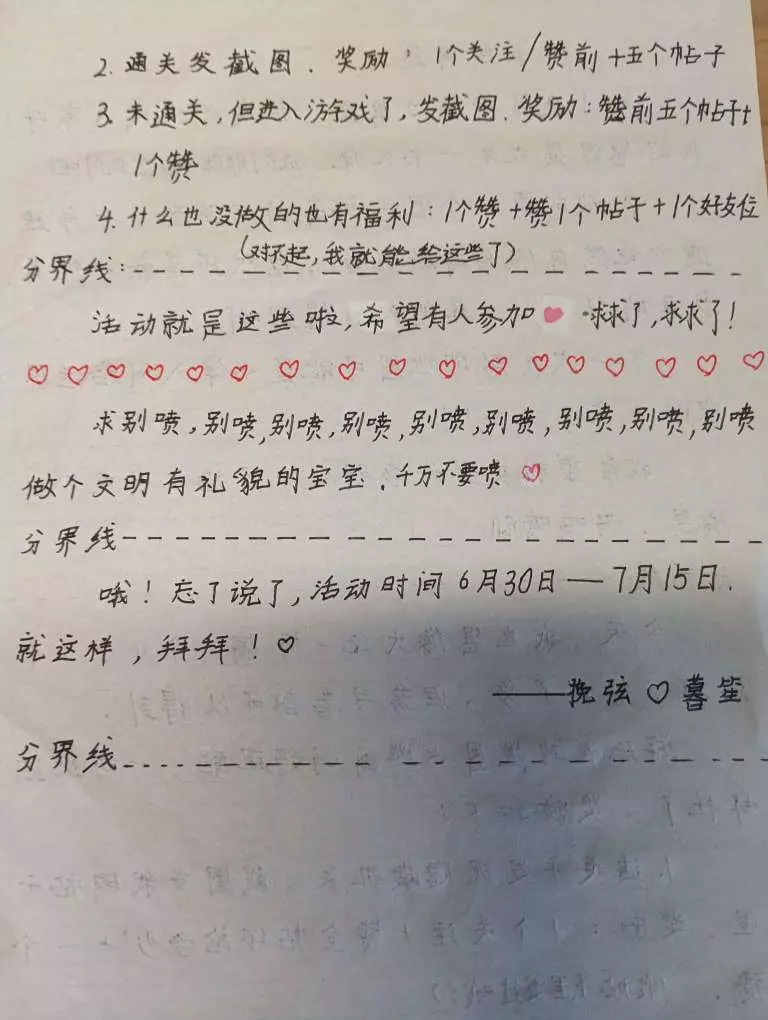 2. 通关发截图. 奖励: 1个关注/赞前+五个帖子
3. 未通关,但进入游戏了,发截图.奖励:赞前五个帖子+
1个赞
4. 什么也没做的也有福利:1个赞+赞1个帖子+1个好友位
(对不起,我就能给这些了)
分界线:
活动就是这些啦,希望有人参加 求求了,求求了!
求别喷,别喷,别喷,别喷,别喷,别喷,别喷,别喷,别喷
做个文明有礼貌的宝宝.千万不要喷♡
分界线
哦!忘了说了,活动时间6月30日—7月15日.
就这样,拜拜!♡
——挽弦♡暮笙
分界线